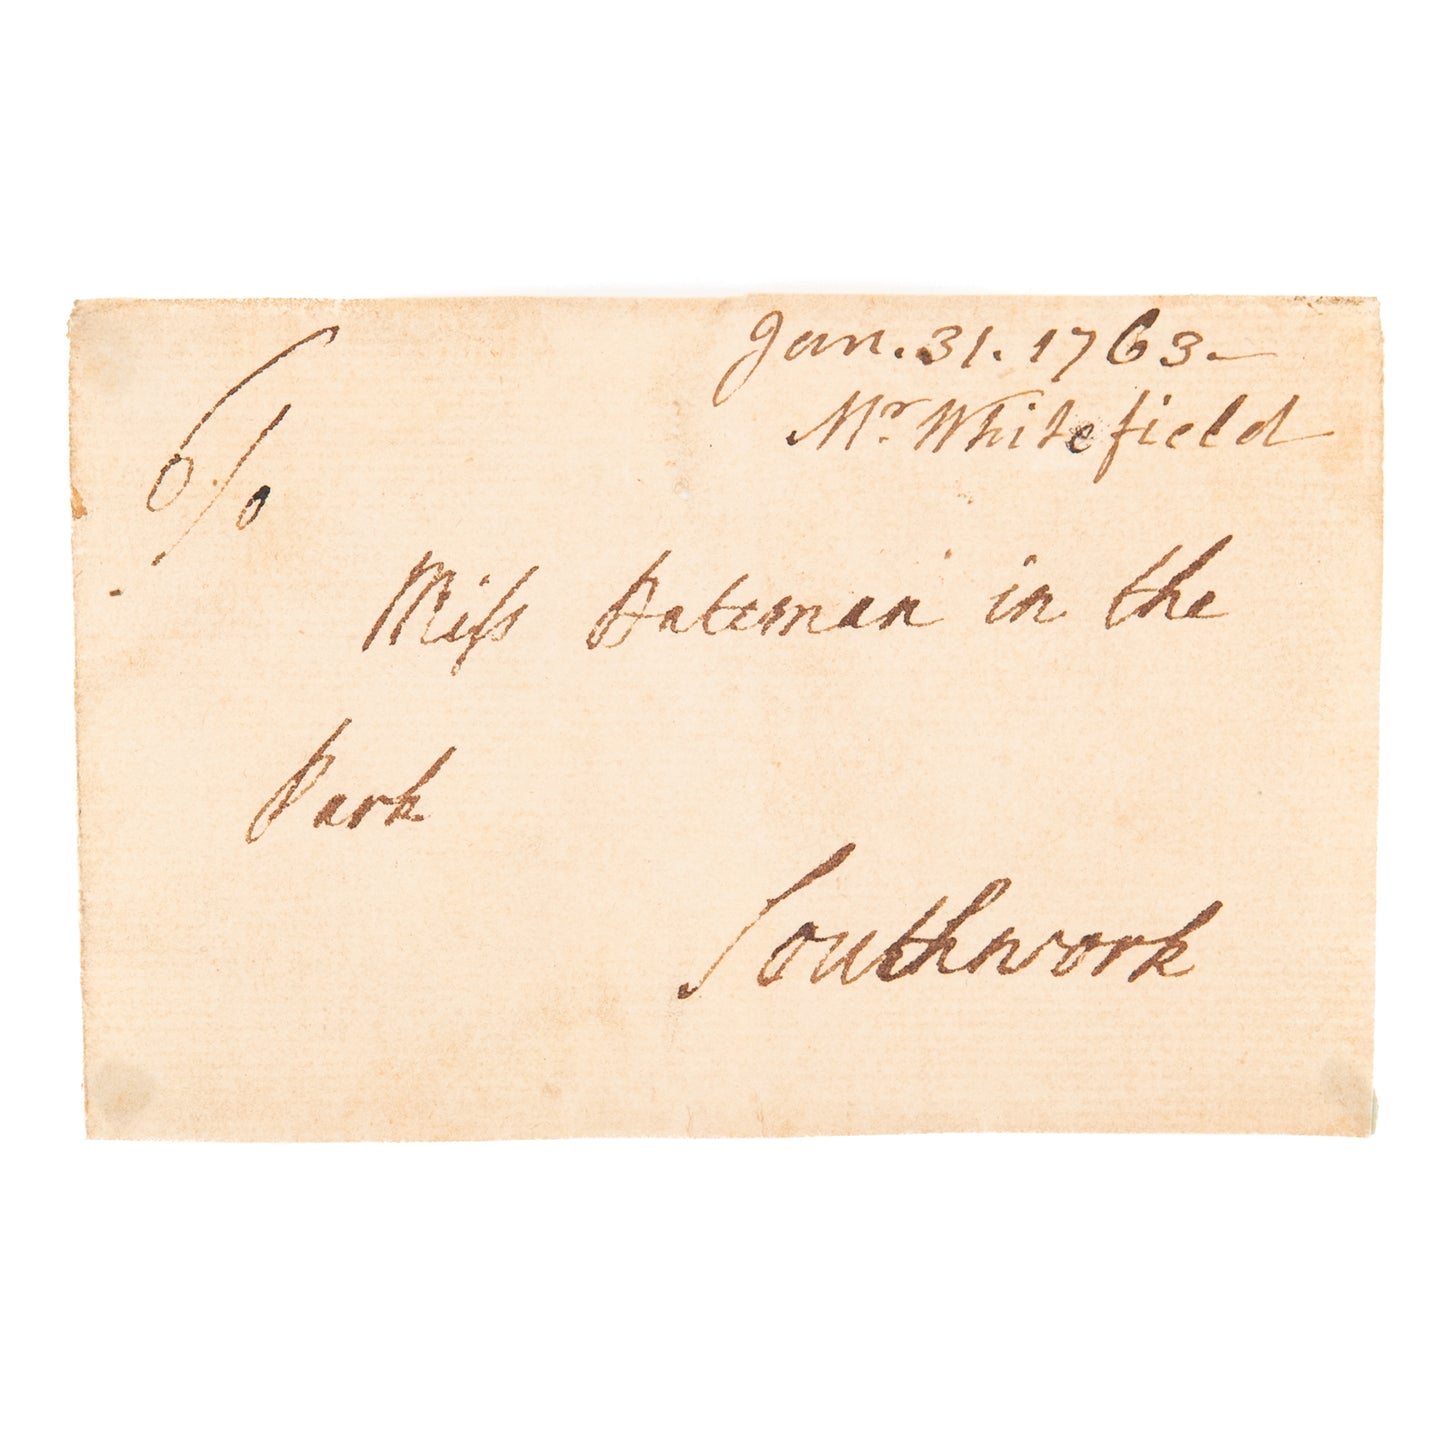 Jan. 31. 1763.—
Mr. Whitefield
To
Miſs Bateman in the
Park
Southwork